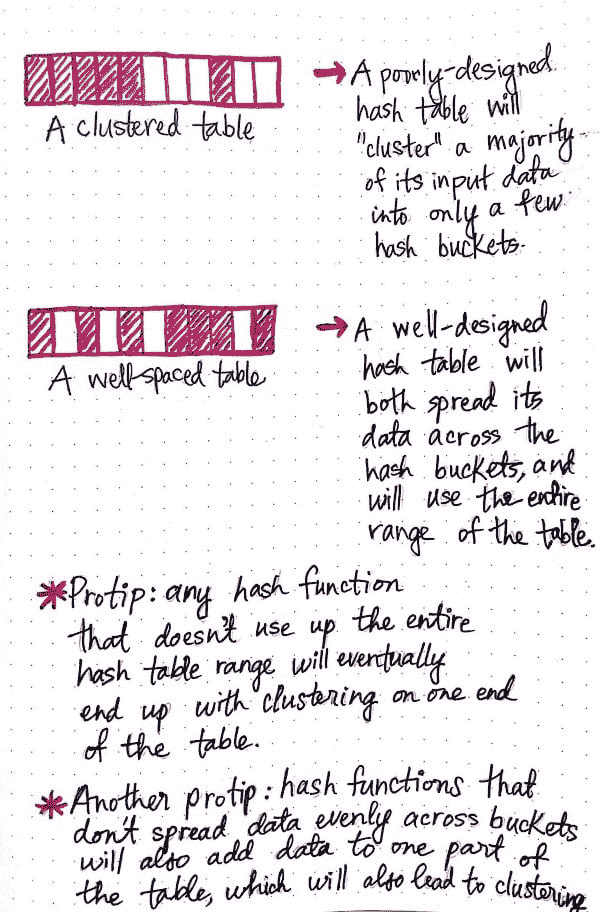 A clustered table
→ A poorly-designed
hash table will
"cluster" a majority
of its input data
into only a few
hash buckets.
A well-spaced table
→ A well-designed
hash table will
both spread its
data across the
hash buckets, and
will use the entire
range of the table.
* Protip: any hash function
that doesn't use up the entire
hash table range will eventually
end up with clustering on one end
of the table.
* Another protip: hash functions that
don't spread data evenly across buckets
will also add data to one part of
the table, which will also lead to clustering